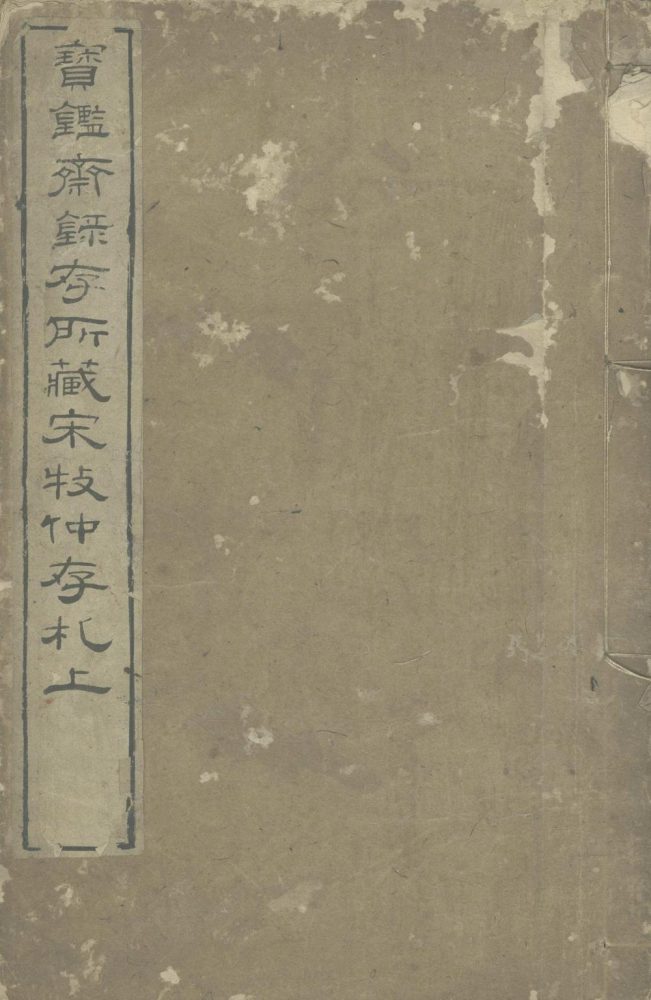 寶鑑齋錄存所藏宋牧仲存札上